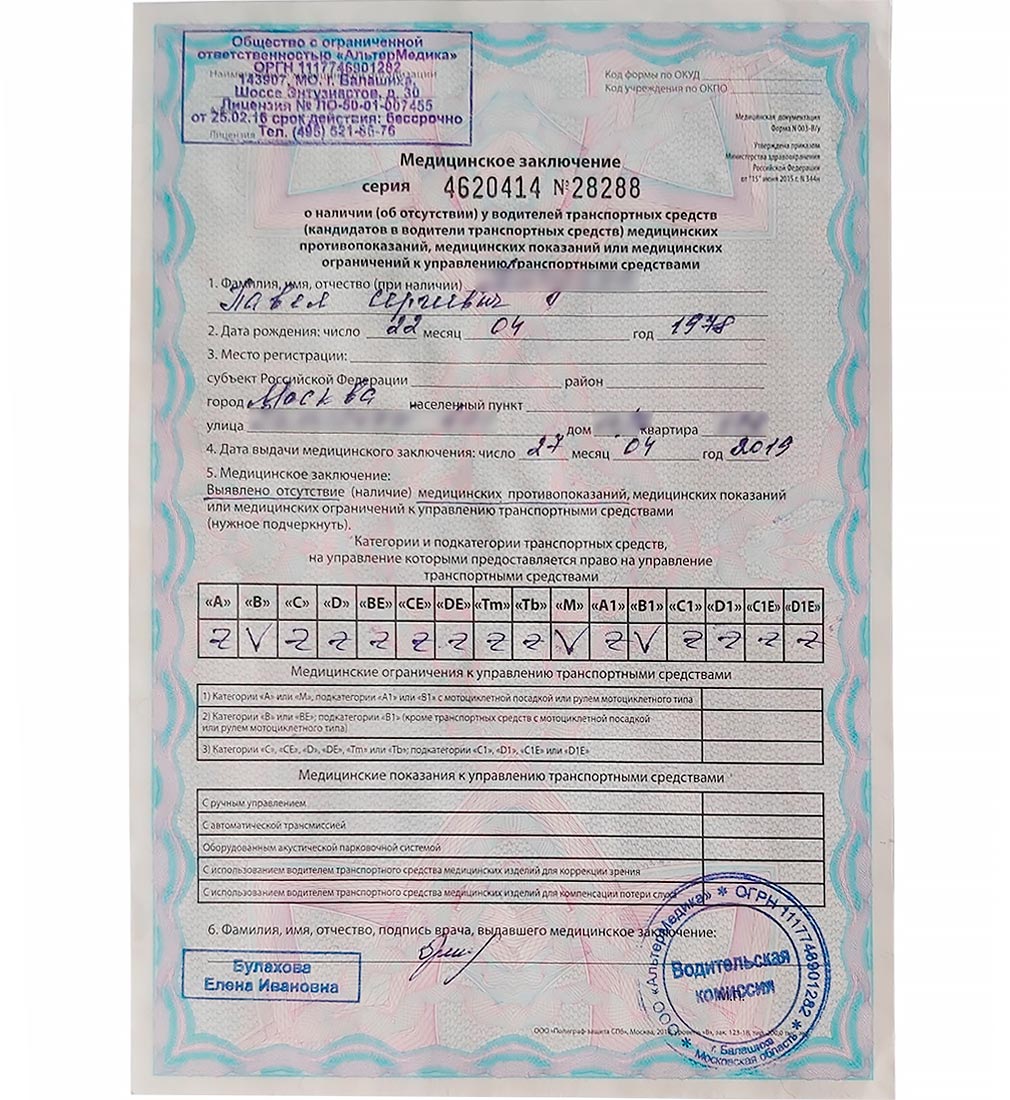 Общество с ограниченной
ответственностью «АльтерМедика»
143907, МО. г. Балашиха,
Шоссе Энтузиастов, д. 30
Лицензия № ЛО-50-01-007455
от 25.02.16 срок действия: бессрочно
Тел. (495) 521-86-76
Код формы по ОКУД
Код учреждения по ОКПО
Медицинская документация
Форма N 003-В/у
Утверждена приказом
Министерства здравоохранения
Российской Федерации
от "15" июня 2015 г. N 344н
Медицинское заключение
серия 4620414 № 28288
о наличии (об отсутствии) у водителей транспортных средств
(кандидатов в водители транспортных средств) медицинских
противопоказаний, медицинских показаний или медицинских
ограничений к управлению транспортными средствами
1. Фамилия, имя, отчество (при наличии)
Павел Сергиевич
2. Дата рождения: число 22 месяц 04 год 1978
3. Место регистрации:
субъект Российской Федерации район
город Москва населенный пункт
улица дом квартира
4. Дата выдачи медицинского заключения: число 27 месяц 04 год 2019
5. Медицинское заключение:
Выявлено отсутствие (наличие) медицинских противопоказаний, медицинских показаний
или медицинских ограничений к управлению транспортными средствами
(нужное подчеркнуть).
Категории и подкатегории транспортных средств,
на управление которыми предоставляется право на управление
транспортными средствами
«A» «B» «C» «D» «BE» «CE» «DE» «Tm» «Tb» «M» «A1» «B1» «C1» «D1» «C1E» «D1E»
Z V Z Z Z Z Z Z Z V Z V Z Z Z Z
Медицинские ограничения к управлению транспортными средствами
1) Категории «A» или «M», подкатегории «A1» или «B1» с мотоциклетной посадкой или рулем мотоциклетного типа
2) Категории «B» или «BE»; подкатегории «B1» (кроме транспортных средств с мотоциклетной посадкой
или рулем мотоциклетного типа)
3) Категории «C», «CE», «D», «DE», «Tm» или «Tb»; подкатегории «C1», «D1», «C1E» или «D1E»
Медицинские показания к управлению транспортными средствами
С ручным управлением
С автоматической трансмиссией
Оборудованным акустической парковочной системой
С использованием водителем транспортного средства медицинских изделий для коррекции зрения
С использованием водителем транспортного средства медицинских изделий для компенсации потери слуха
6. Фамилия, имя, отчество, подпись врача, выдавшего медицинское заключение:
Булахова
Елена Ивановна
ООО «АльтерМедика» * ОГРН 1117746901282 *
Водительская
комиссия
г. Балашиха
Московская область